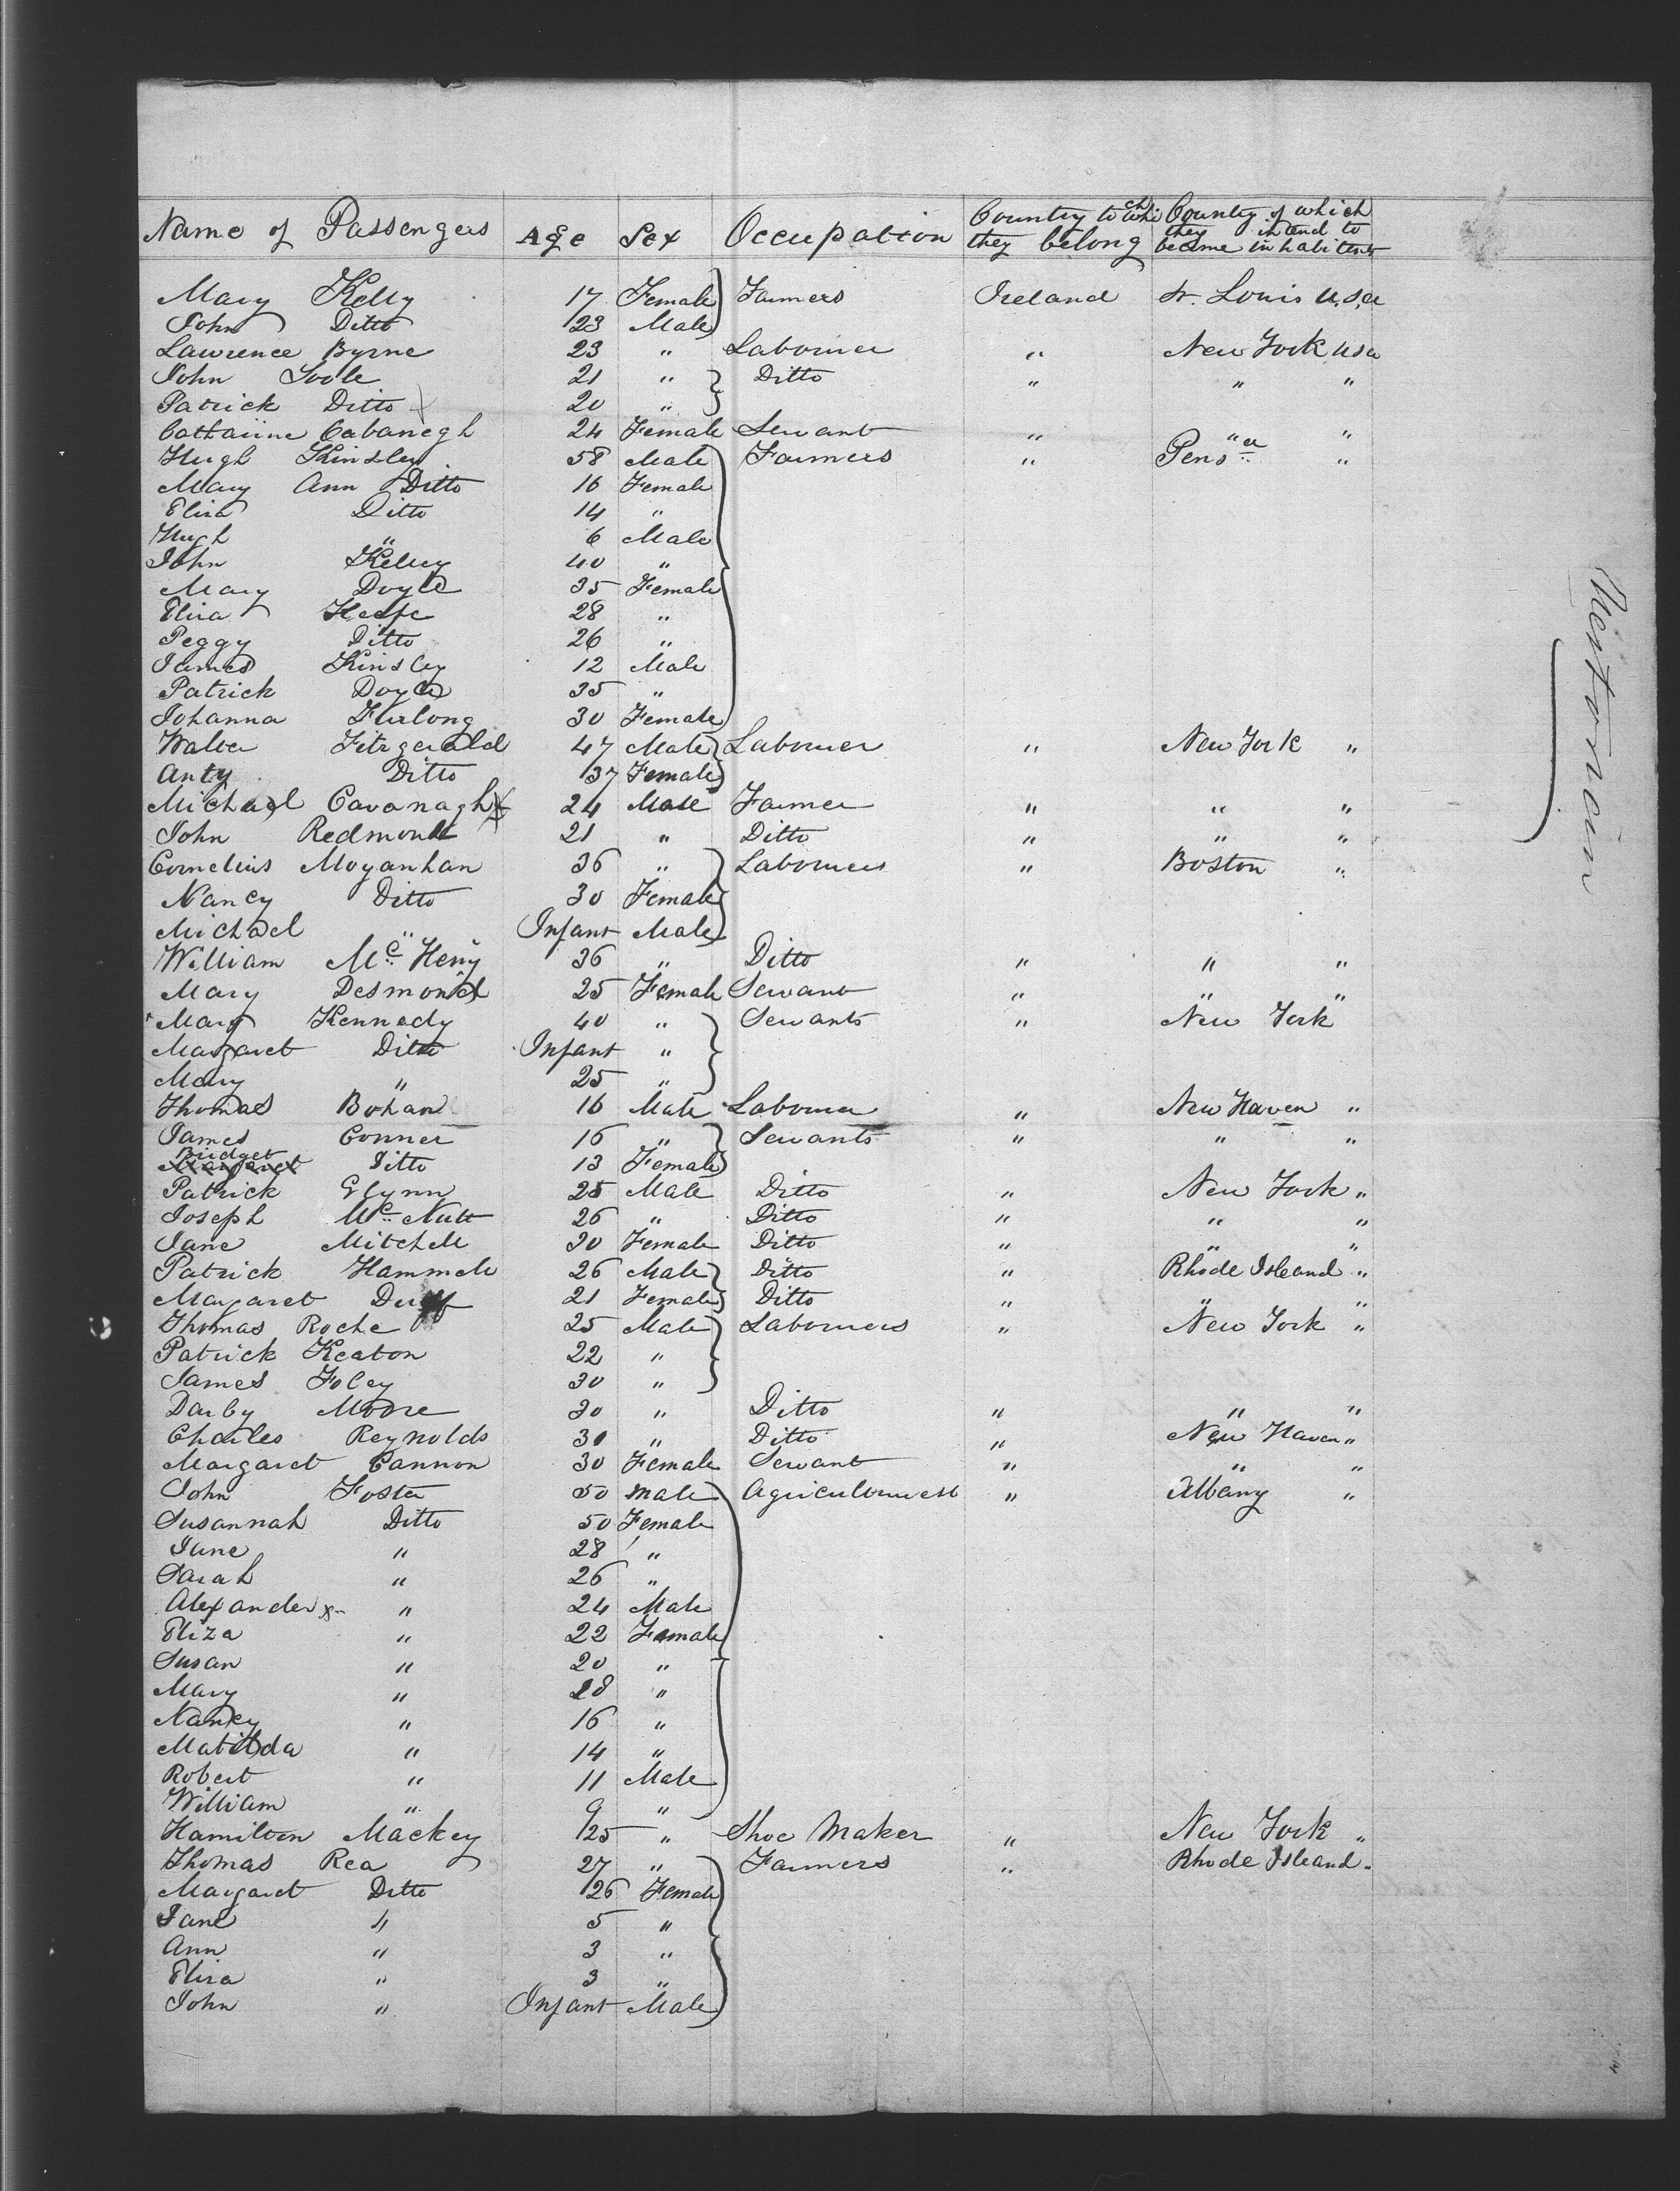 Name of Passengers Age Sex Occupation Country to which they belong Country of which they intend to become inhabitents
Mary Kelly 17 Female Farmers Ireland St. Louis U.S.a
John Ditto 23 Male
Lawrence Byrne 23 " Labourer " New York usa
John Toole 21 " Ditto " " "
Patrick Ditto 20 "
Catharine Cabanegh 24 Female Servant " " "
Hugh Kinsley 58 Male Farmers " Pensa "
Mary Ann Ditto 16 Female
Eliza Ditto 14 "
Hugh " 6 Male
John Kelley 40 "
Mary Doyle 35 Female
Eliza Keefe 28 "
Peggy Ditto 26 "
James Kinsley 12 Male
Patrick Doyle 35 "
Johanna Furlong 30 Female
Walter Fitzgerald 47 Male Labourer " New York "
Anty Ditto 37 Female
Michael Cavanagh 24 Male Farmer " " "
John Redmond 21 " Ditto " " "
Cornelius Moyanhan 36 " Labourers " Boston "
Nancy Ditto 30 Female
Michael " Infant Male
William Mc Henry 36 " Ditto " " "
Mary Desmond 25 Female Servant " " "
Mary Kennedy 40 " Servants " New York
Margaret Ditto Infant "
Mary " 25 "
Thomas Bohan 16 Male Labourer " New Haven "
James Conner 16 " Servants " " "
Bridget Margaret Ditto 13 Female
Patrick Glynn 25 Male Ditto " New York "
Joseph Mc Nutt 26 " Ditto " " "
Jane Mitchell 20 Female Ditto " " "
Patrick Hammele 26 Male Ditto " Rhode Isleand "
Margaret Duff 21 Female Ditto " " "
Thomas Roche 25 Male Labourers " New York "
Patrick Keaton 22 "
James Foley 30 "
Darby Moore 30 " Ditto " " "
Charles Reynolds 30 " Ditto " New Haven "
Margaret Cannon 30 Female Servant " " "
John Foster 50 male " Albany "
Susannah Ditto 50 Female
Jane " 28 "
Sarah " 26 "
Alexander " 24 Male
Eliza " 22 Female
Susan " 20 "
Mary " 18 "
Nancy " 16 "
Matilda " 14 "
Robert " 11 Male
William " 9 "
Hamilton Mackey 25 " Shoe Maker " New York "
Thomas Rea 27 " Farmers " Rhode Isleand "
Margaret Ditto 26 Female
Jane " 5 "
Ann " 3 "
Eliza " 3 "
John " Infant Male